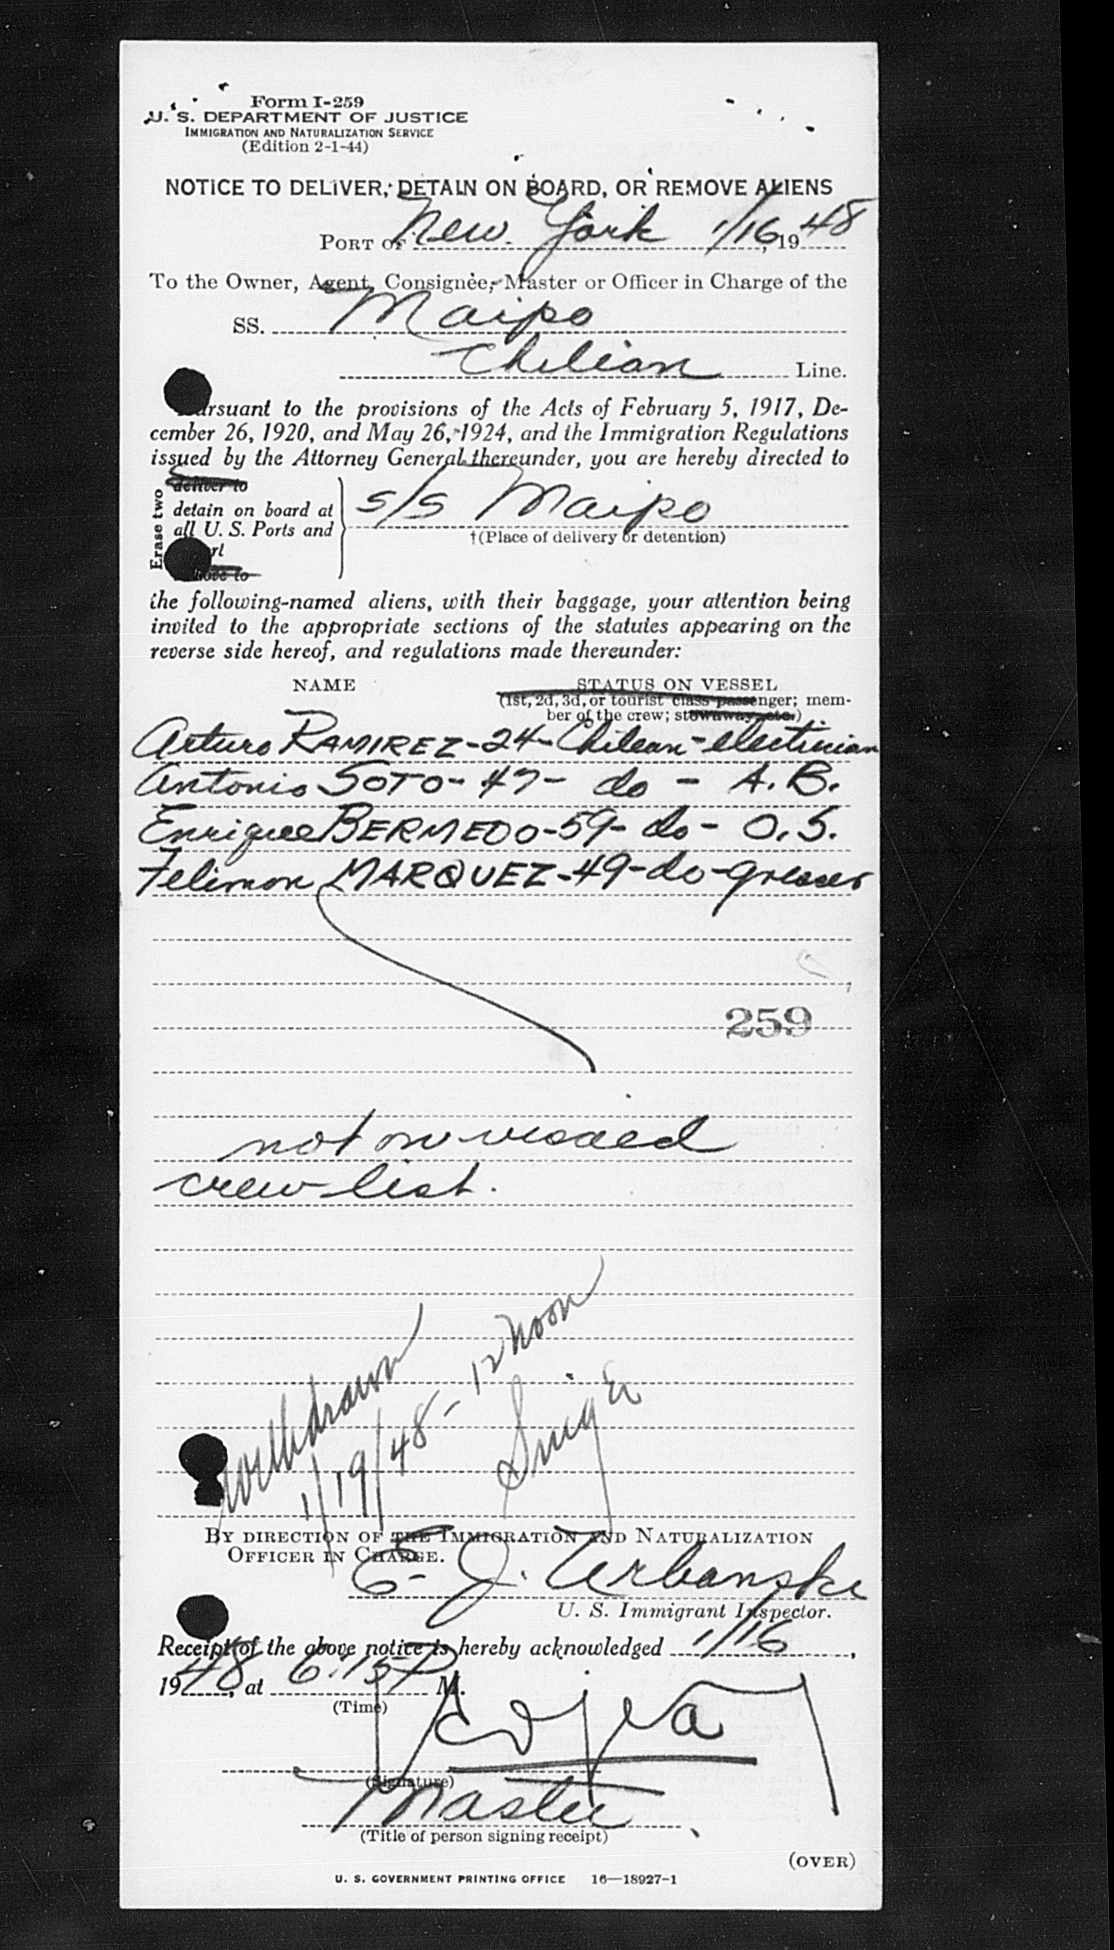 Form I-259
U. S. DEPARTMENT OF JUSTICE
IMMIGRATION AND NATURALIZATION SERVICE
(Edition 2-1-44)
NOTICE TO DELIVER, DETAIN ON BOARD, OR REMOVE ALIENS
PORT OF New York 1/16, 1948
To the Owner, Agent, Consignee, Master or Officer in Charge of the
SS. Maipo
Chilean Line.
Pursuant to the provisions of the Acts of February 5, 1917, De-
cember 26, 1920, and May 26, 1924, and the Immigration Regulations
issued by the Attorney General thereunder, you are hereby directed to
Erase two
deliver to
detain on board at
all U. S. Ports and
s/s Maipo
†(Place of delivery or detention)
the following-named aliens, with their baggage, your attention being
invited to the appropriate sections of the statutes appearing on the
reverse side hereof, and regulations made thereunder:
NAME STATUS ON VESSEL
(1st, 2d, 3d, or tourist class passenger; mem-
ber of the crew; stowaway, etc.)
Arturo RAMIREZ-24-Chilean-electrician
Antonio SOTO-47- do - A.B.
Enrique BERMEDO-59- do - O.S.
Felimon MARQUEZ-49-do-greaser
259
not on visaed
crew list.
Withdrawn
1/19/48 - 12 Noon
BY DIRECTION OF THE IMMIGRATION AND NATURALIZATION
OFFICER IN CHARGE.
E. J. Urbanski
U. S. Immigrant Inspector.
Receipt of the above notice is hereby acknowledged 1/16,
1948, at 6:15 P M.
(Time)
(Signature)
Master
(Title of person signing receipt)
(OVER)
U. S. GOVERNMENT PRINTING OFFICE 16—18927-1